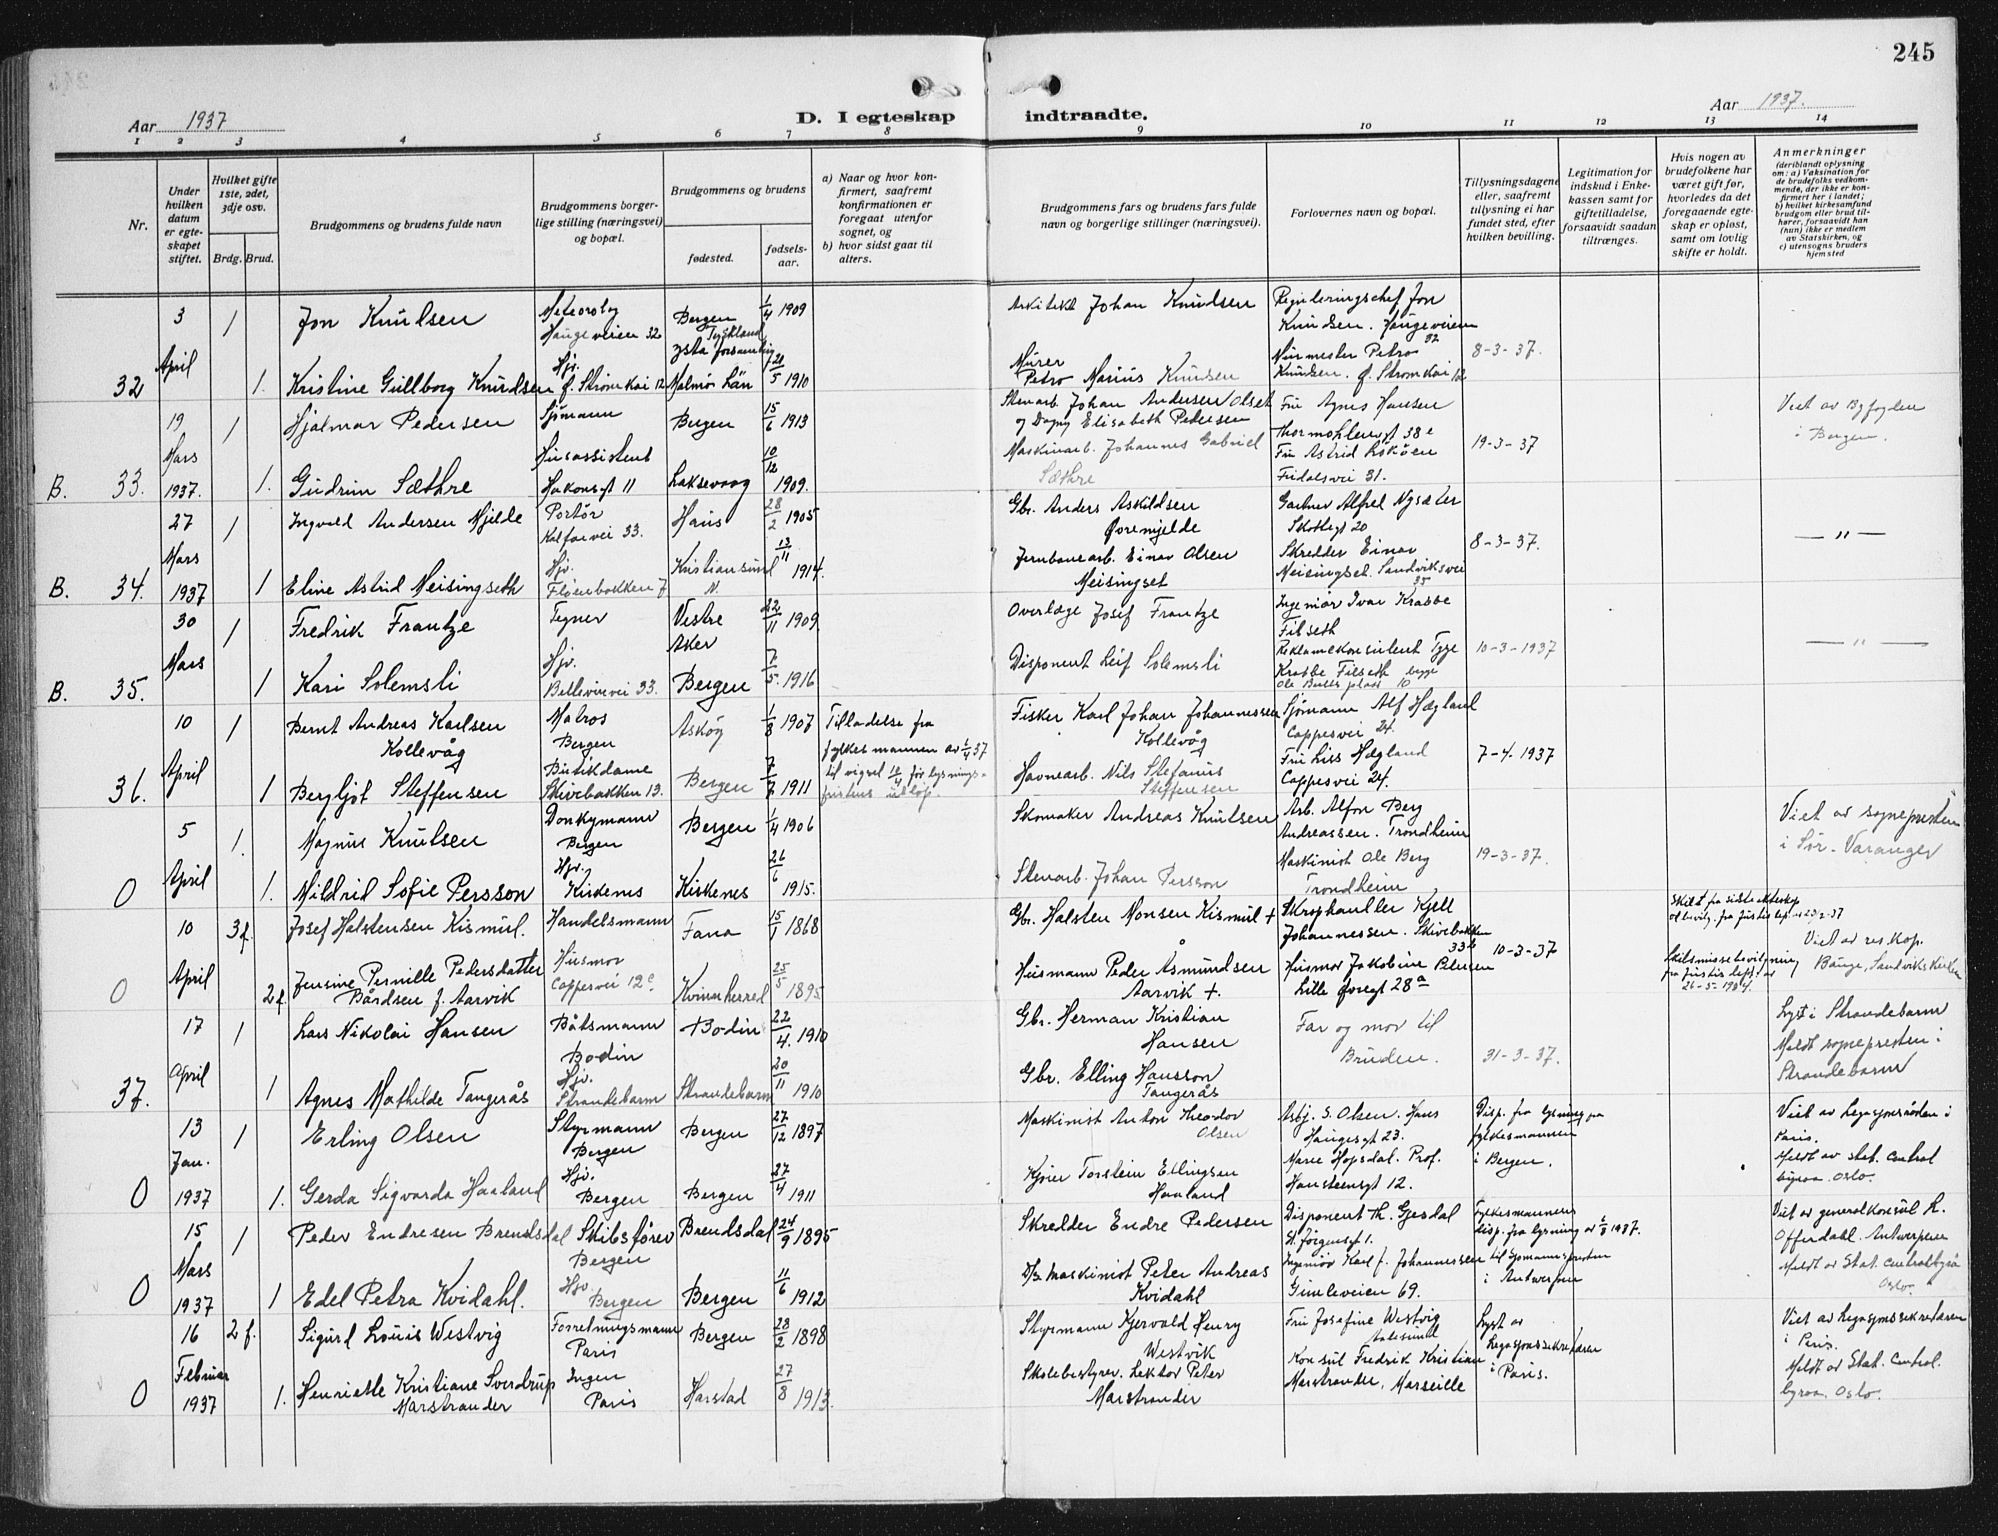 245
Aar 1937
D. I egteskap indtraadte.
Aar 1937.
1 2 3 4 5 6 7 8 9 10 11 12 13 14
Nr.
Under hvilken datum er egte-skapet stiftet.
Hvilket gifte 1ste, 2det, 3dje osv.
Brdg. Brud.
Brudgommens og brudens fulde navn
Brudgommens borger-lige stilling (næringsvei) og bopæl.
Brudgommens og brudens
fødested.
fødsels-aar.
a) Naar og hvor kon-firmert, saafremt konfirmationen er foregaat utenfor sognet, og
b) hvor sidst gaat til alters.
Brudgommens fars og brudens fars fulde navn og borgerlige stillinger (næringsvei).
Forlovernes navn og bopæl.
Tillysningsdagene eller, saafremt tillysning ei har fundet sted, efter hvilken bevilling.
Legitimation for indskud i Enke-kassen samt for giftetilladelse, forsaavidt saadan tiltrænges.
Hvis nogen av brudefolkene har været gift før, hvorledes da det foregaaende egte-skap er opløst, samt om lovlig skifte er holdt.
Anmerkninger
(deriblandt oplysning om: a) Vaksination for de brudefolks vedkom-mende, der ikke er kon-firmert her i landet; b) hvilket kirkesamfund brudgom eller brud til-hører, forsaavidt han (hun) ikke er medlem av Statskirken, og c) utensogns bruders hjemsted
3 1 Jon Knudsen Meteorolog Haugeveien 32 Bergen 1/4 1909 Arkitekt Johan Knudsen Reguleringschef Jon Knudsen. Haugeveien 32
32 April 1. Kristine Gullborg Knudsen Hjv. Ø. Strømkai 12 Tyskland Malmös Län 20/5 1910 Murer Petro Marius Knudsen Murmester Petro Knudsen. Ø. Strømkai 12 8-3-37.
19 1 Hjalmar Pedersen Sjømann Bergen 15/6 1913 Stenarb. Johan Andersen Olset og Dagny Elisabeth Pedersen Fru Agnes Hansen Thormøhlensgt 38 e Viet av Byfogden i Bergen.
B. 33. Mars 1937. 1. Gudrun Sæthre Husassistent Hakonsgt 11 Laksevaag 10/12 1909. Maskinarb. Johannes Gabriel Sæthre Fru Astrid Fridalsvei 31. 19-3-37
27 1 Ingvald Andersen Mjelde Portør Kalfarvei 33. Haus 28/2 1905 Gbr. Anders Askildsen Øvremjelde Gartner Alfred Nysæter Skottegt 20
B. 34. Mars 1937 1 Eline Astrid Meisingseth Hjv. Fløienbakken 7 Kristiansund N. 13/11 1914. Jernbanearb. Einar Olsen Meisingset Skredder Einar Meisingset. Sandviksvei 35 8-3-37. — " —
30 1 Fredrik Frantze Tegner Vestre Aker 22/11 1909 Overlæge Josef Frantze Ingeniør Ivar Krabbe Filseth
B. 35. Mars 1 Kari Solemsli Hjv. Bellevuevei 33. Bergen 7/5. 1916 Disponent Leif Solemsli Reklamekonsulent Tyge Krabbe Filseth begge Ole Bulls plass 10 10-3-1937 — " —
10 1 Bernt Andreas Karlsen Kollevåg Matros Bergen Askøy 1/8 1907 Tilladelse fra fylkesmannen av 6/4 37 til vigsel 10/4 før lysnings-fristens utløp. Fisker Karl Johan Johannessen Kollevåg Sjømann Alf Hægland Cappesvei 24.
36. April 1 Bergljot Steffensen Butikdame Skivebakken 13. Bergen 7/7 1911 Havnearb. Nils Stefanus Steffensen Fru Liss Hægland Cappesvei 24. 7-4. 1937
5 1. Magnus Knutsen Donkymann Bergen Bergen 1/4 1906 Skomaker Andreas Knutsen Arb. Alfon Berg Andreassen. Trondheim Viet av sognepresten i Sør-Varanger
0 April 1. Mildrid Sofie Persson Hjv. Kirkenes Kirkenes 26/6 1915. Stenarb. Johan Persson Maskinist Ole Berg Trondheim 19-3-37.
10 3 f. Josef Halstensen Kismul. Handelsmann Fana 15/1 1868 Gbr. Halsten Monsen Kismul + Skraphandler Kjell Johannessen. Skivebakken 33 b Skilt fra siste ekteskap v/ bevilg. fra justisdep. 23/2-37 Viet av res. kap. Bauge, Sandvikskirken
0 April 2 f. Jensine Pernille Pedersdatter Bårdsen f. Aarvik Husmor Cappesvei 12 c Kvinnherred 25/5 1895 Husmann Peder Åsmundsen Aarvik +. Husmor Jakobine Petersen Lille Øvregt 28 a 10-3-37 Skilsmissebevilgning fra justisdept. av 26-5-1934.
17 1 Lars Nikolai Hansen Båtsmann Bodin Bodin 22/4. 1910 Gbr. Herman Kristian Hansen Far og mor til Bruden. Lyst i Strandebarm Meldt sognepresten i Strandebarm
37. April 1 Agnes Mathilde Tangerås Hjv. Strandebarm Strandebarm 20/11 1910 Gbr. Elling Hansson Tangerås 31-3-37.
13 1 Erling Olsen Styrmann Bergen Bergen 27/12 1897 Maskinist Anton Theodor Olsen Asbj. S. Olsen. Hans Haugesgt 23. Disp. fra lysning fra fylkesmannen i Bergen. Viet av Legasjonsråden i Paris.
0 Jan. 1937 1. Gerda Sigvarda Haaland Hjv. Bergen Bergen 27/4 1911 Kjører Torstein Ellingsen Haaland Marie Hopsdal. Prof. Hansteensgt 12. Meldt av Stat. Central byraa. Oslo.
15 1 Peder Endresen Brendsdal Skibsfører Bergen Brendsdal 24/9 1895 Skredder Endre Pedersen Disponent Th. Gjesdal St. Jørgensgt 1. Fylkesmannens disp. fra lysning av 6/3 1937. Viet av generalkonsul R. Offerdahl. Antwerpen
0 Mars 1937 1 Edel Petra Kvidahl. Hjv. Bergen Bergen 11/6 1912 D/s Maskinist Peter Andreas Kvidahl Ingeniør Karl J. Johannessen Gimleveien 69. til sjømannspresten i Antwerpen Meldt av Stat. centralbyrå Oslo.
16 2 f. Sigurd Louis Westvig Forretningsmann Paris Bergen 28/2 1898 Styrmann Gjervald Henry Westvik Fru Josefine Westvig Aalesund Lyst av Legasjonssekretæren i Paris. Viet av Legasjonssekretæren i Paris.
0 Februar 1937 1. Henriette Kristiane Sverdrup Marstrander Ingen Paris Harstad 27/8 1913. Skolebestyrer. Lektor Peter Marstrander Konsul Fredrik Kristian Marstrander, Marseille Meldt av Stat. Central. byraa. Oslo.